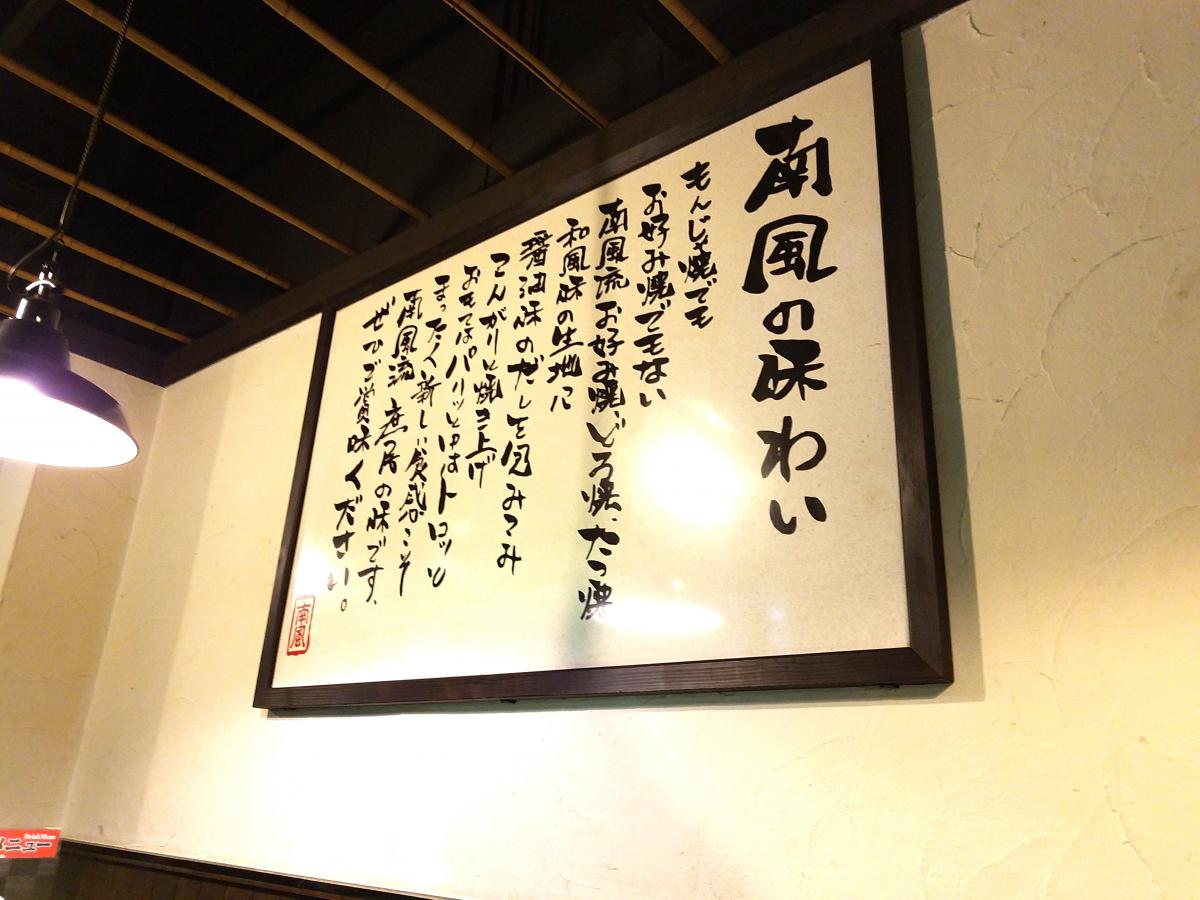 南風の味わい
もんじゃ焼でも
お好み焼でもない
南風流お好み焼、どろ焼、たこ焼
和風味の生地に
醤油味のだしを包みこみ
こんがりと焼き上げ
おもてはパリッと中はトロッと
まったく新しい食感こそ
南風流
の味です、
ぜひご賞味ください。
南風
メニュー